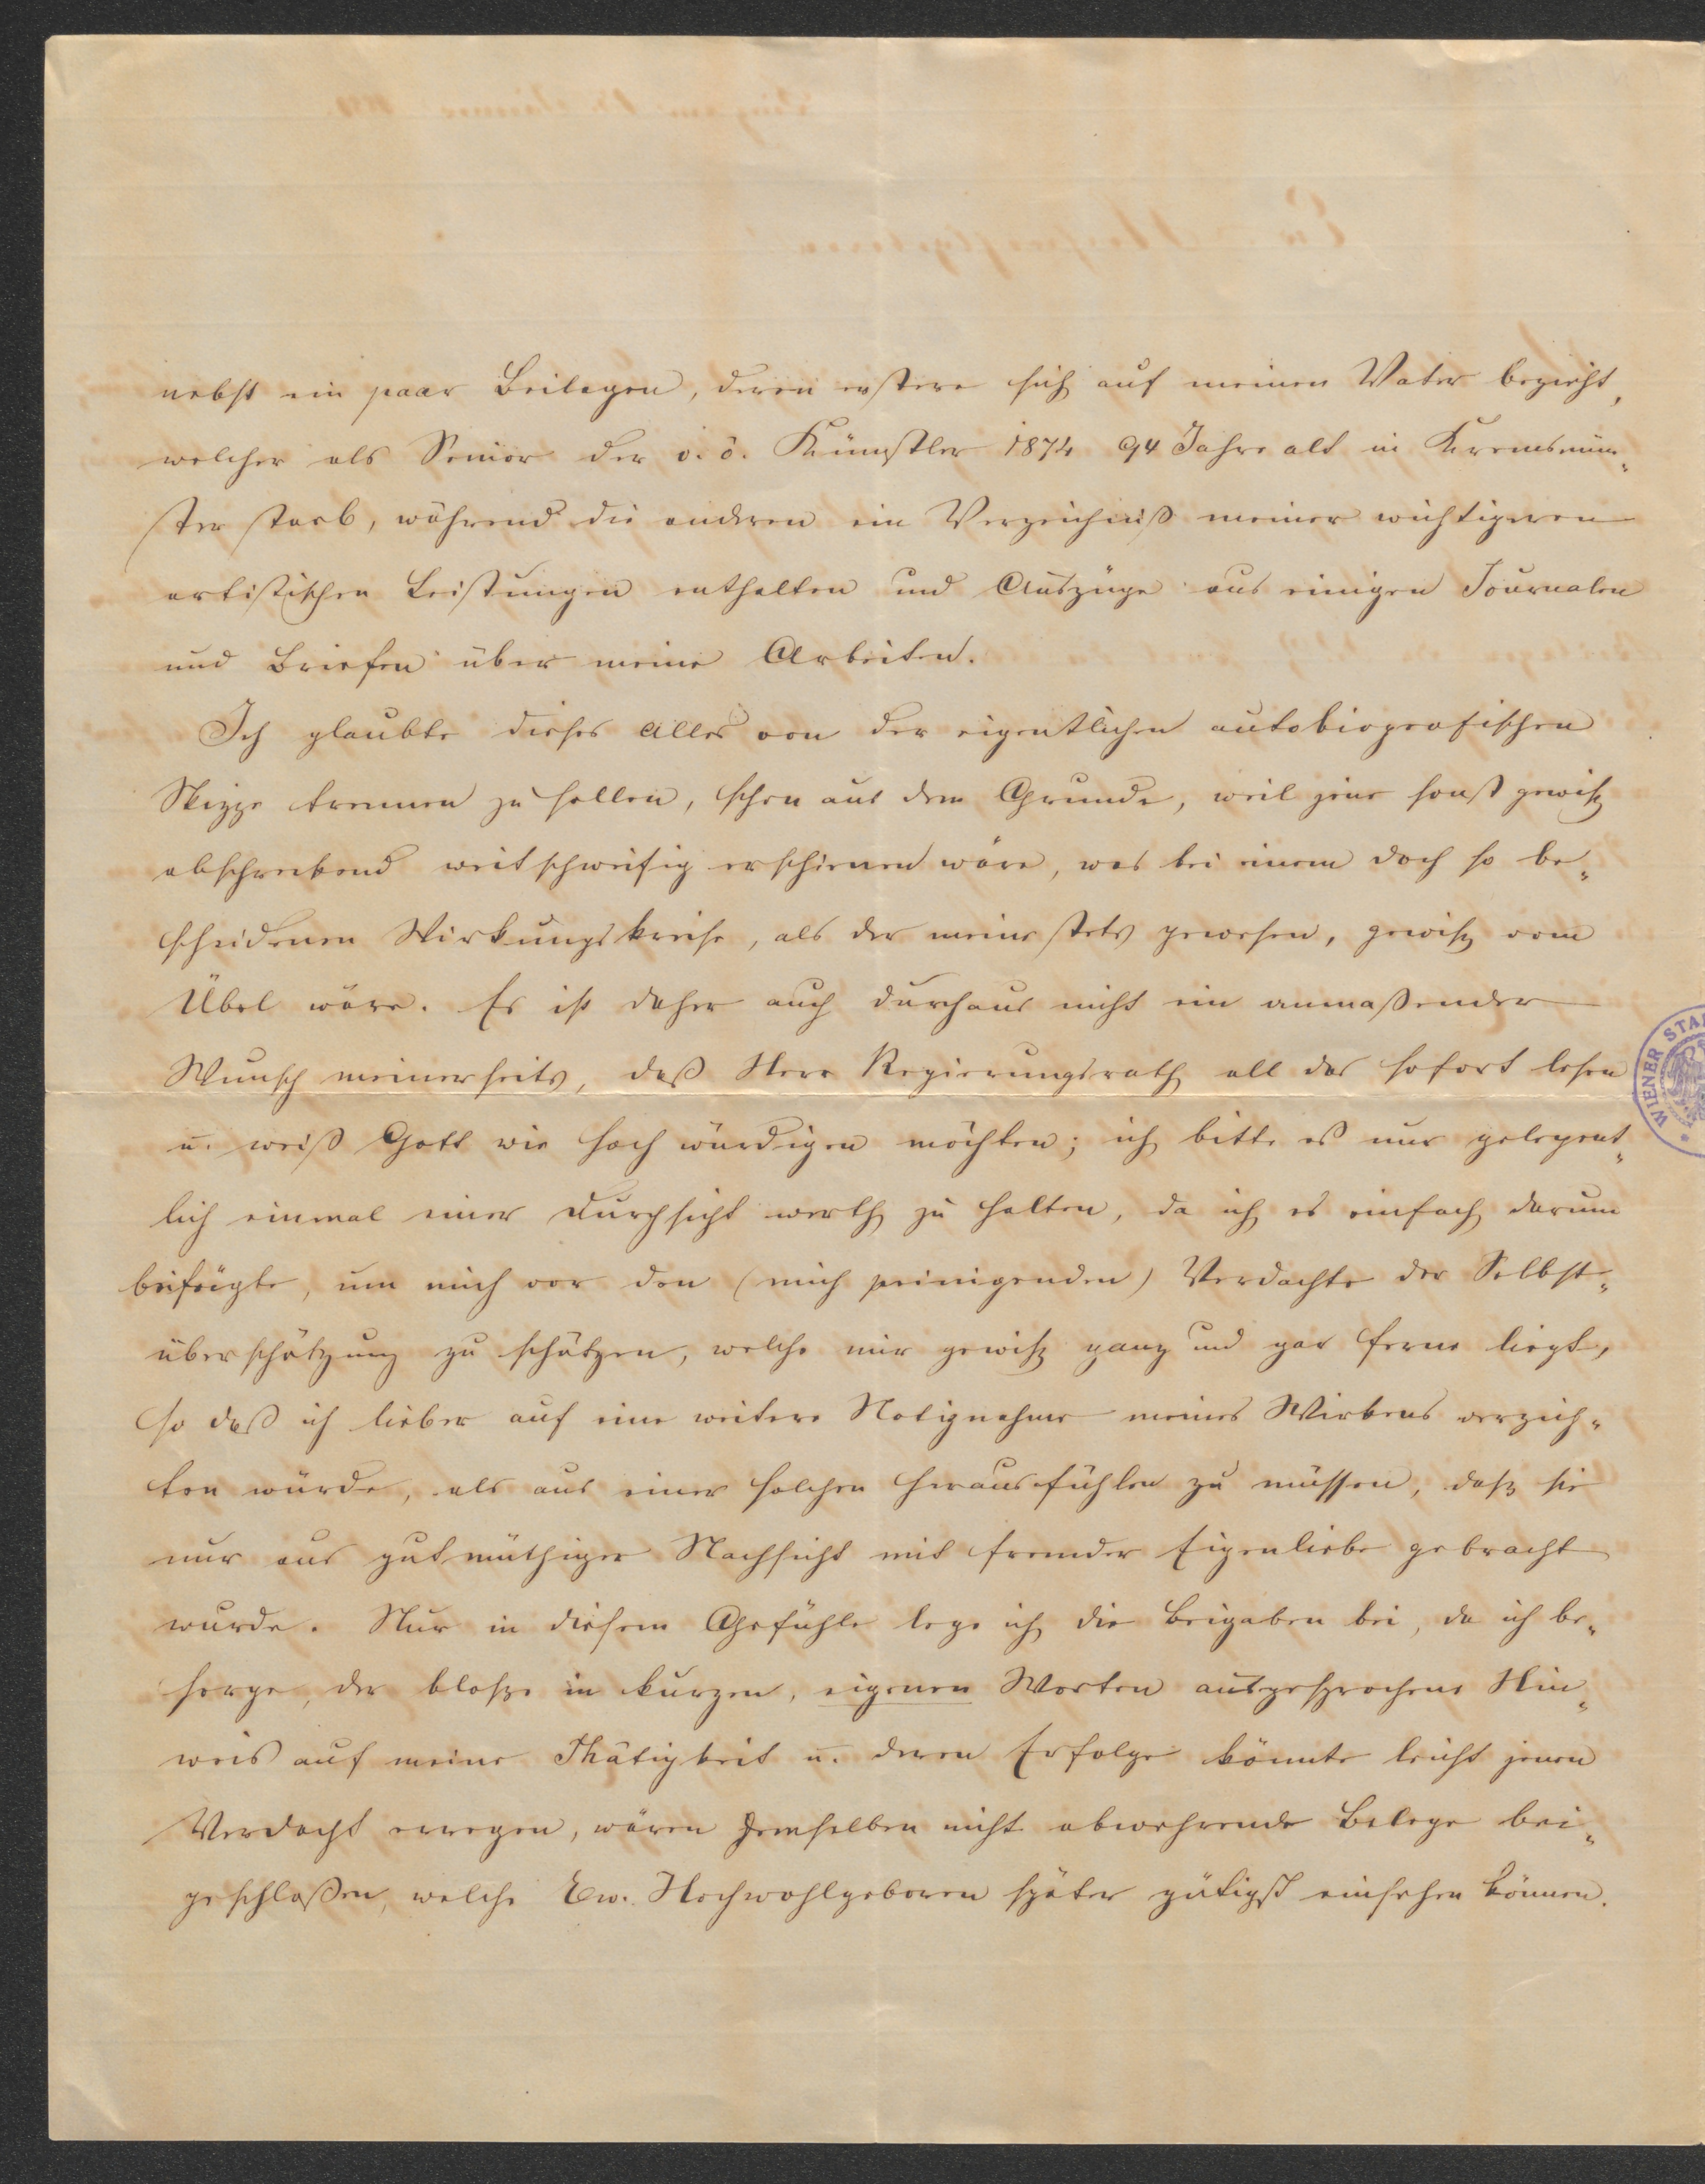 nebst ein paar Beilagen, deren erstere sich auf meinen Vater bezieht,
welcher als Senior der o. ö. Künstler 1874 94 Jahre alt in Kremsmün„
ster starb, während die anderen ein Verzeichniß meiner wichtigeren
artistischen Leistungen enthalten und Auszüge aus einigen Journalen
und Briefen über meine Arbeiten.
Ich glaubte dieses Alles von der eigentlichen autobiografischen
Skizze trennen zu sollen, schon aus dem Grunde, weil jene sonst gewiß
abschreckend weitschweifig erschienen wäre, was bei einem doch so be„
scheidenen Wirkungskreise, als der meine stets gewesen, gewiß vom
Übel wäre. Es ist daher auch durchaus nicht ein anmaßender
Wunsch meinerseits, daß Herr Regierungsrath all das sofort lesen
u. weiß Gott wie hoch würdigen möchten; ich bitte es nur gelegent„
lich einmal einer Durchsicht werth zu halten, da ich es einfach darum
beifügte, um mich vor den (mich peinigenden) Verdachte der Selbst„
überschätzung zu schützen, welche mir gewiß ganz und gar ferne liegt,
so daß ich lieber auf eine weitere Notiznahme meines Wirkens verzich„
ten würde, als aus einer solchen herausfühlen zu müssen, daß sie
nur aus gutmüthiger Nachsicht mit fremder Eigenliebe gebracht
wurde. Nur in diesem Gefühle lege ich die Beigaben bei, da ich be„
sorge, der bloße in kurzen, eigenen Worten ausgesprochene Hin„
weis auf meine Thätigkeit u. deren Erfolge könnte leicht jenen
Verdacht erregen, wären demselben nicht abwehrende Belege bei„
geschloßen, welche Ew. Hochwohlgeboren später gütigst einsehen können.
WIENER STA